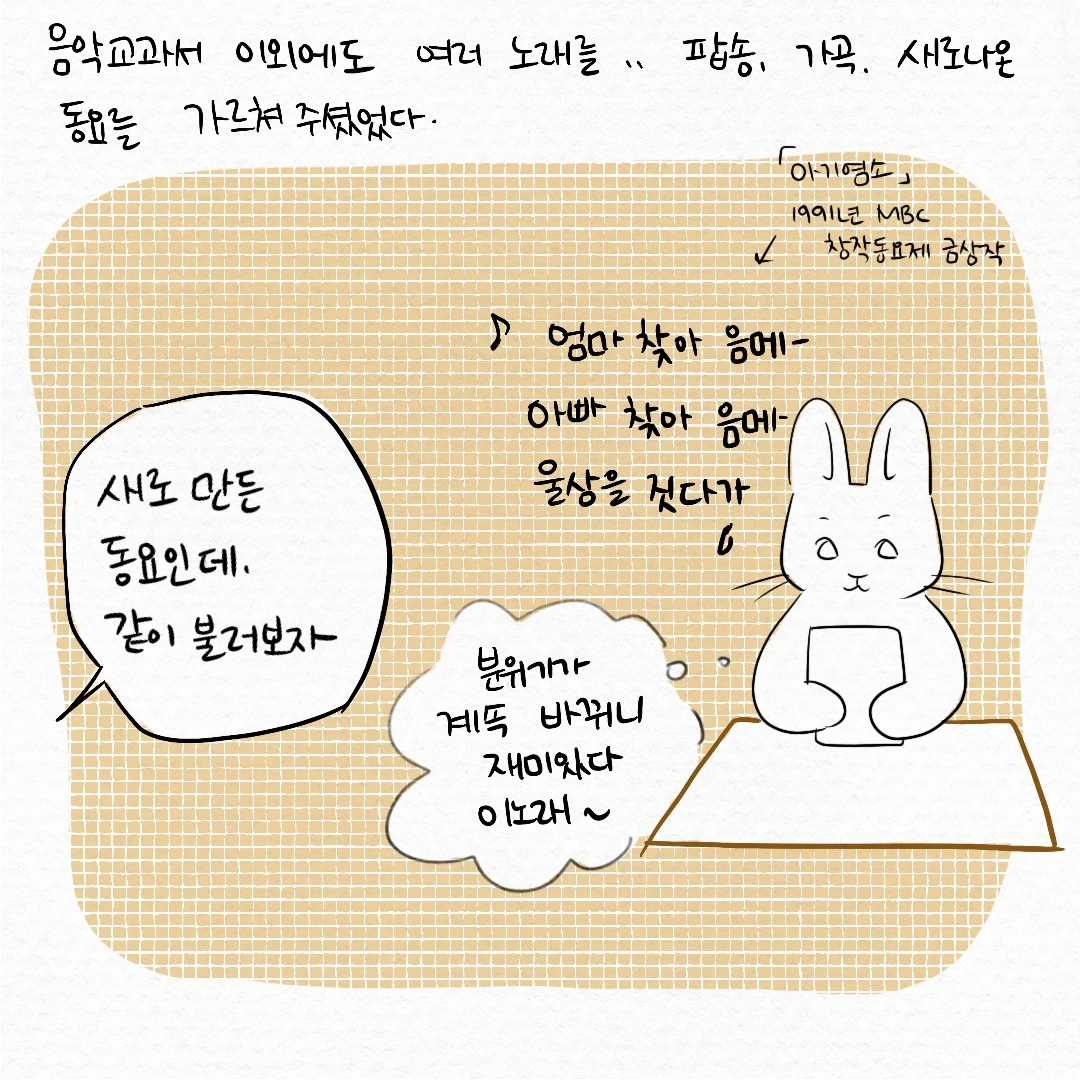 음악교과서 이외에도 여러 노래를.. 팝송, 가곡, 새로나온
동요를 가르쳐 주셨었다.
「아기염소」
1991년 MBC
↙ 창작동요제 금상작
♪ 엄마 찾아 음메-
아빠 찾아 음메-
울상을 짓다가
새로 만든
동요인데,
같이 불러보자
분위기가
계뚝 바뀌니
재미있다
이노래~